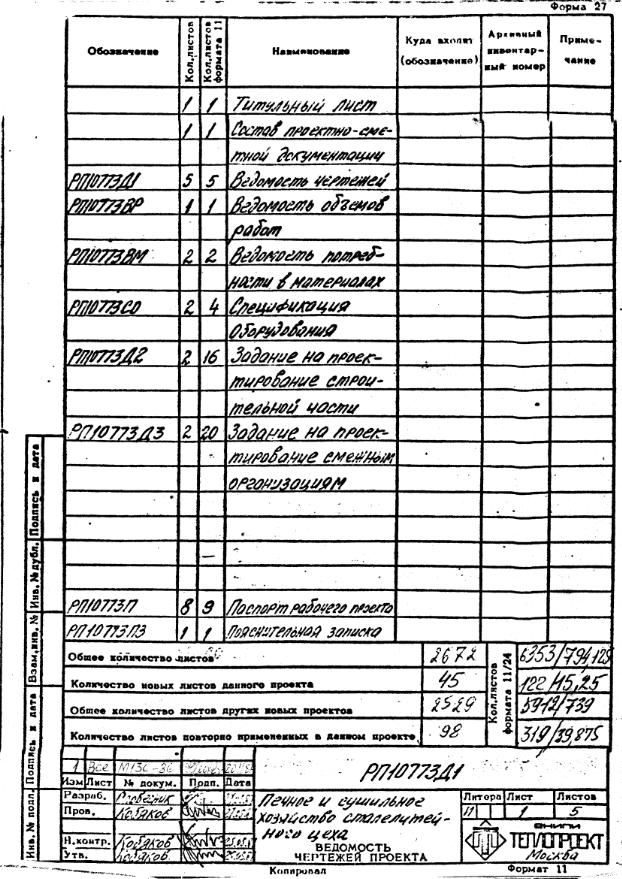 Форма 27
Обозначение Кол.листов Кол.листов формата 11 Наименование Куда входит (обозначение) Архивный инвентар-ный номер Приме-чание
1 1 Титульный лист
1 1 Состав проектно-сме-
тной документации
РП10773Д1 5 5 Ведомость чертежей
РП10773ВР 1 1 Ведомость объемов
работ
РП10773ВМ 2 2 Ведомость потреб-
ности в материалах
РП10773СО 2 4 Спецификация
оборудования
РП10773Д2 2 16 Задание на проек-
тирование строи-
тельной части
РП10773Д3 2 20 Задание на проек-
тирование смежным
организациям
РП10773П 8 9 Паспорт рабочего проекта
РП10773ПЗ 1 1 Пояснительная записка
Общее количество листов 2672 6353/794,125
Количество новых листов данного проекта 45 122/15,25
Общее количество листов других новых проектов 2529 5912/739
Количество листов повторно примененных в данном проекте 98 319/39,875
Кол.листов формата 11/24
1 Все
Изм Лист № докум. Подп. Дата
РП10773Д1
Разраб.
Пров. Кобяков
Н.контр. Кобяков
Утв. Кобяков
Печное и сушильное
хозяйство сталелитей-
ного цеха
ВЕДОМОСТЬ
ЧЕРТЕЖЕЙ ПРОЕКТА
Литера Лист Листов
П 1 5
ВНИПИ
ТЕПЛОПРОЕКТ
Москва
Копировал Формат 11
Инв. № подл. Подпись и дата Взам.инв. № Инв. № дубл. Подпись и дата